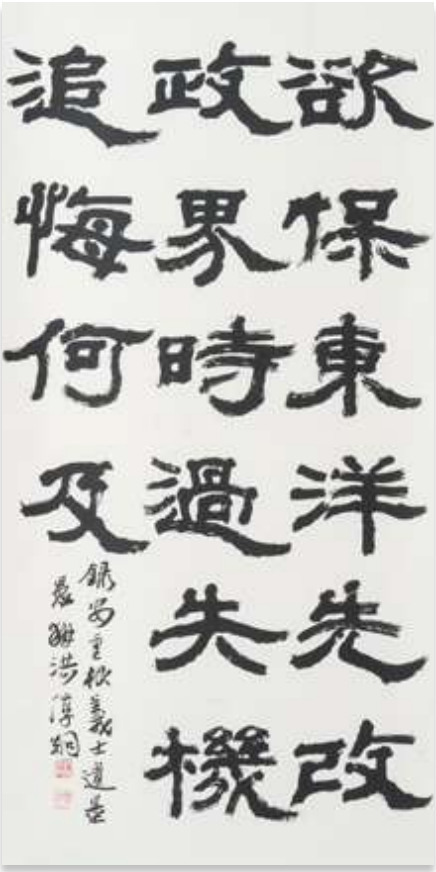 欲保東洋先改
政界時過失機
追悔何及
錄安重根義士遺墨
洪淳